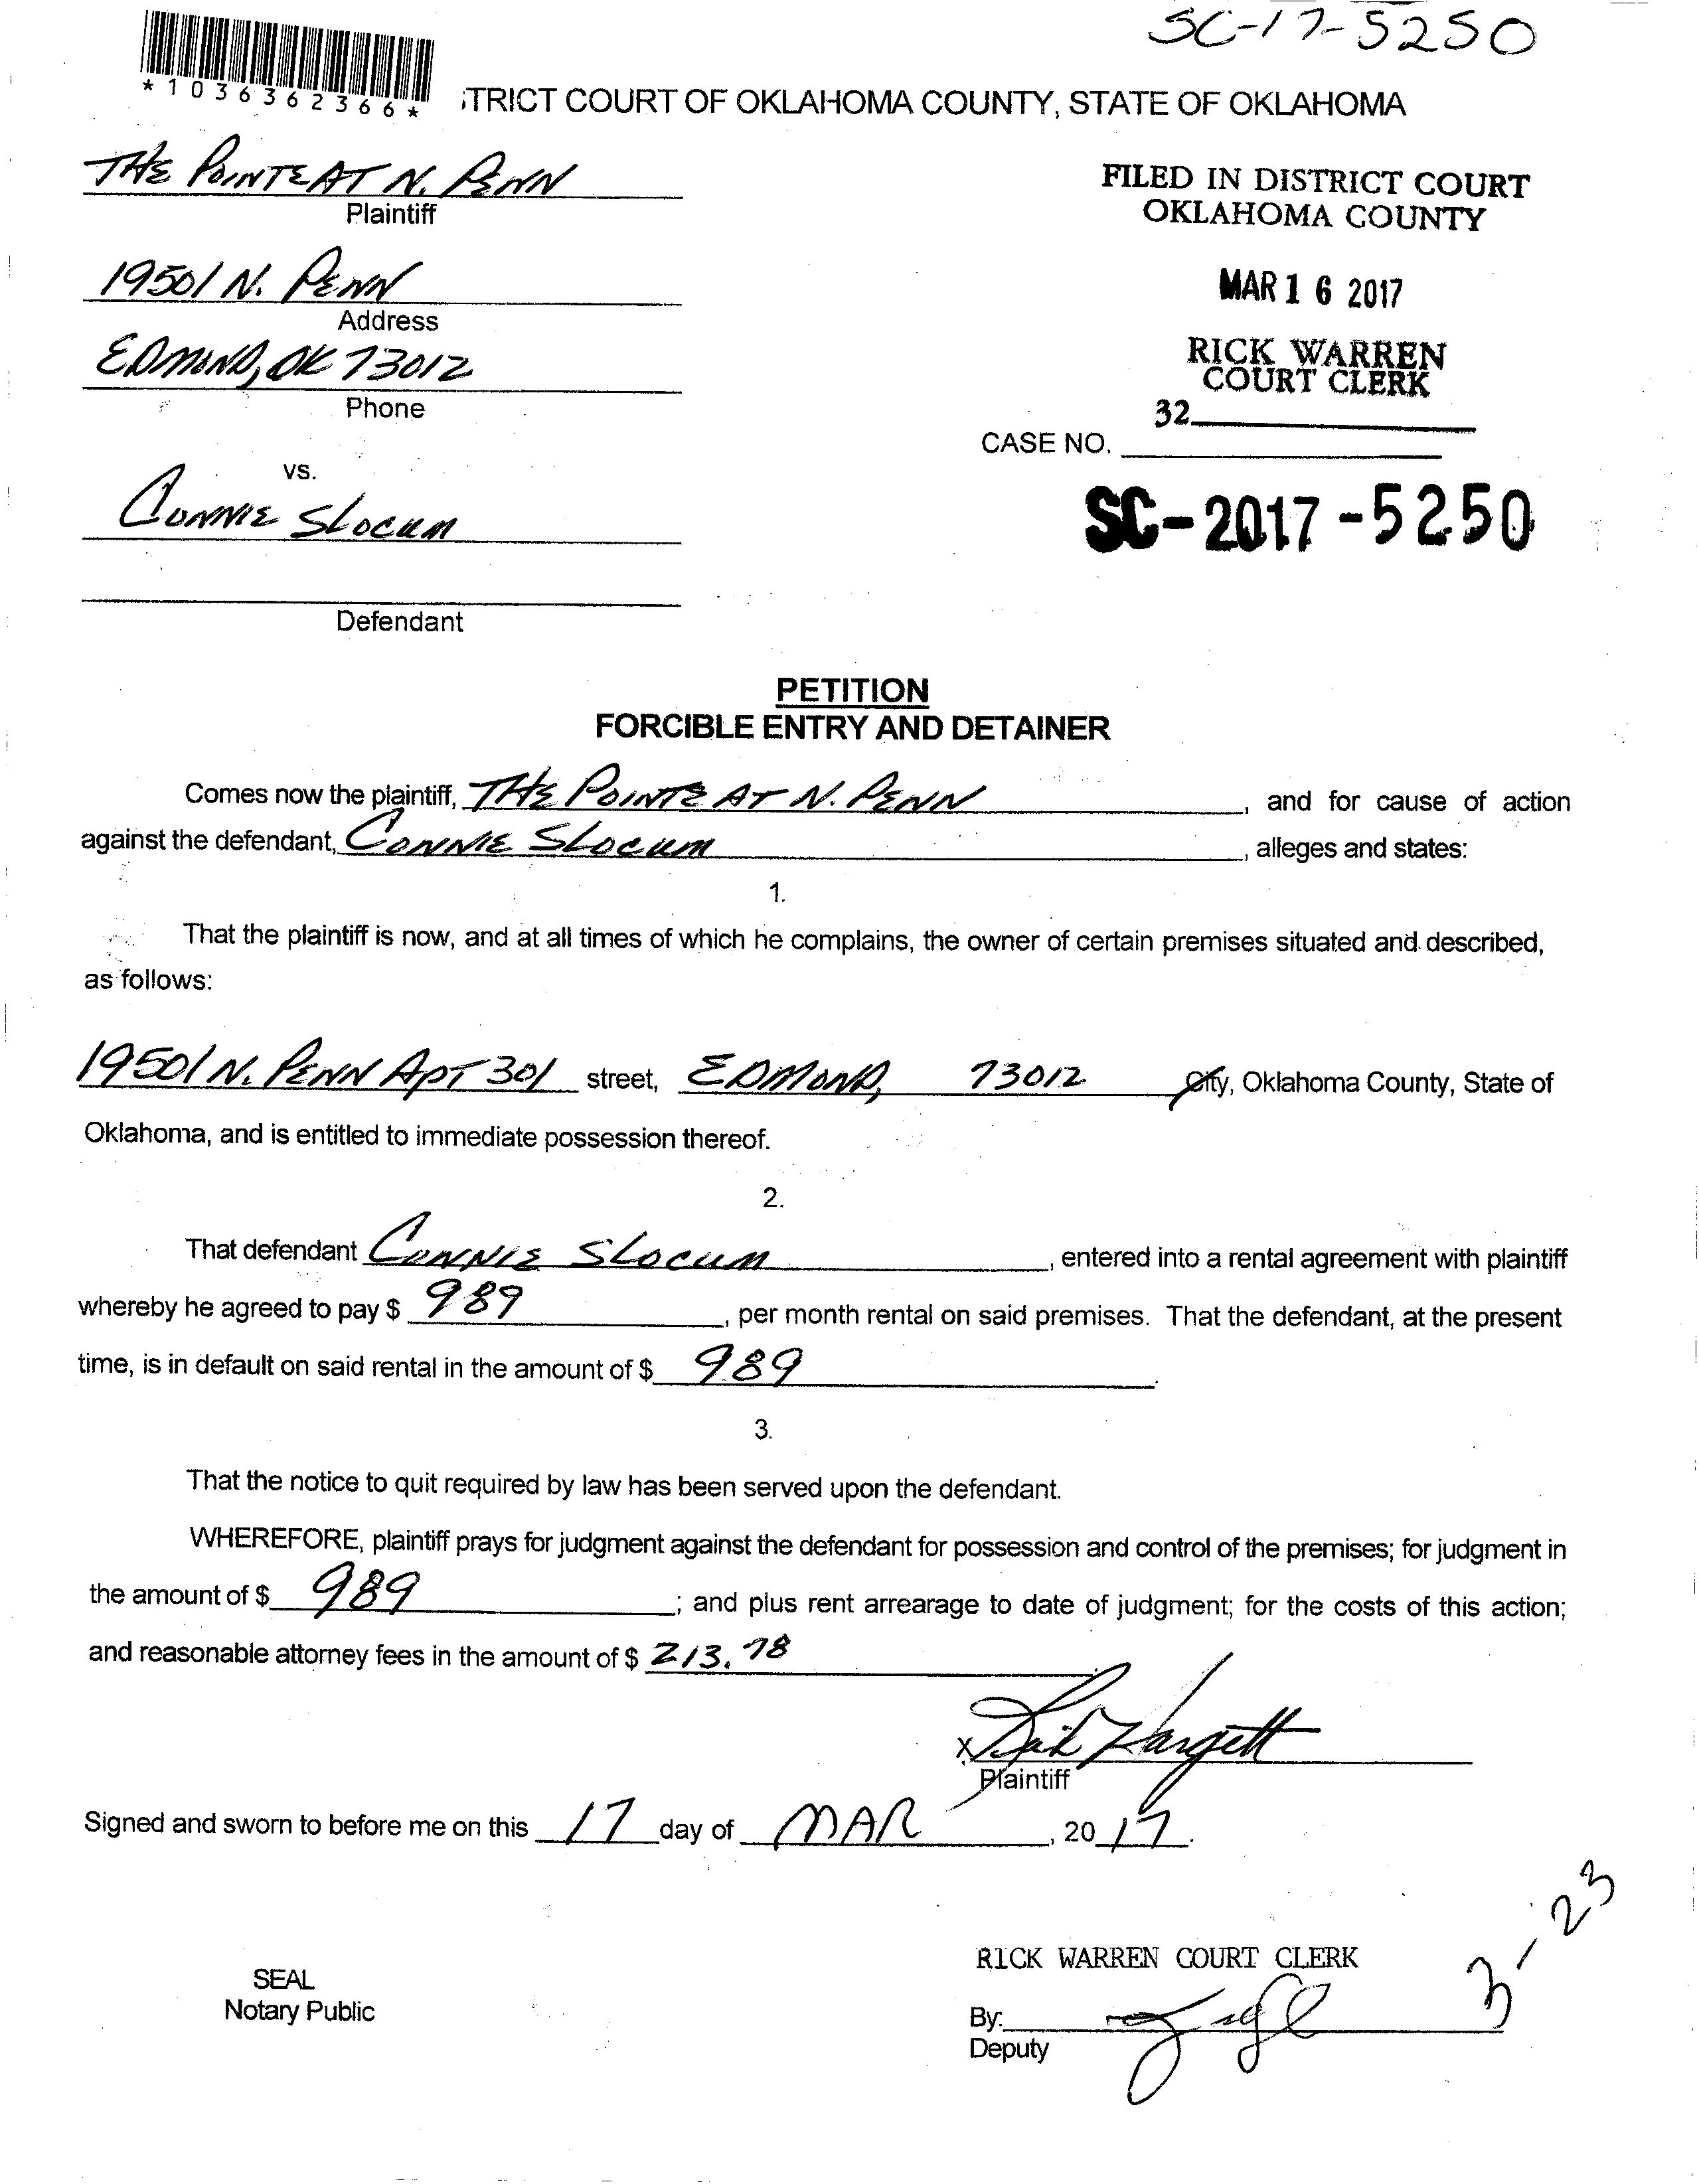 SC-17-5250
*1036362366*
TRICT COURT OF OKLAHOMA COUNTY, STATE OF OKLAHOMA
THE POINTE AT N. PENN
Plaintiff
FILED IN DISTRICT COURT
OKLAHOMA COUNTY
19501 N. PENN
Address
MAR 16 2017
EDMOND, OK 73012
Phone
RICK WARREN
COURT CLERK
32
CASE NO.
vs.
CONNIE SLOCUM
SC-2017-5250
Defendant
PETITION
FORCIBLE ENTRY AND DETAINER
Comes now the plaintiff, THE POINTE AT N. PENN, and for cause of action
against the defendant, CONNIE SLOCUM, alleges and states:
1.
That the plaintiff is now, and at all times of which he complains, the owner of certain premises situated and described,
as follows:
19501 N. PENN APT 301 street, EDMOND, 73012 City, Oklahoma County, State of
Oklahoma, and is entitled to immediate possession thereof.
2.
That defendant CONNIE SLOCUM, entered into a rental agreement with plaintiff
whereby he agreed to pay $ 989, per month rental on said premises. That the defendant, at the present
time, is in default on said rental in the amount of $ 989.
3.
That the notice to quit required by law has been served upon the defendant.
WHEREFORE, plaintiff prays for judgment against the defendant for possession and control of the premises; for judgment in
the amount of $ 989; and plus rent arrearage to date of judgment; for the costs of this action;
and reasonable attorney fees in the amount of $ 213.78
X Hargett
Plaintiff
Signed and sworn to before me on this 17 day of MAR, 2017.
3-23
RICK WARREN COURT CLERK
SEAL
Notary Public
By:
Deputy